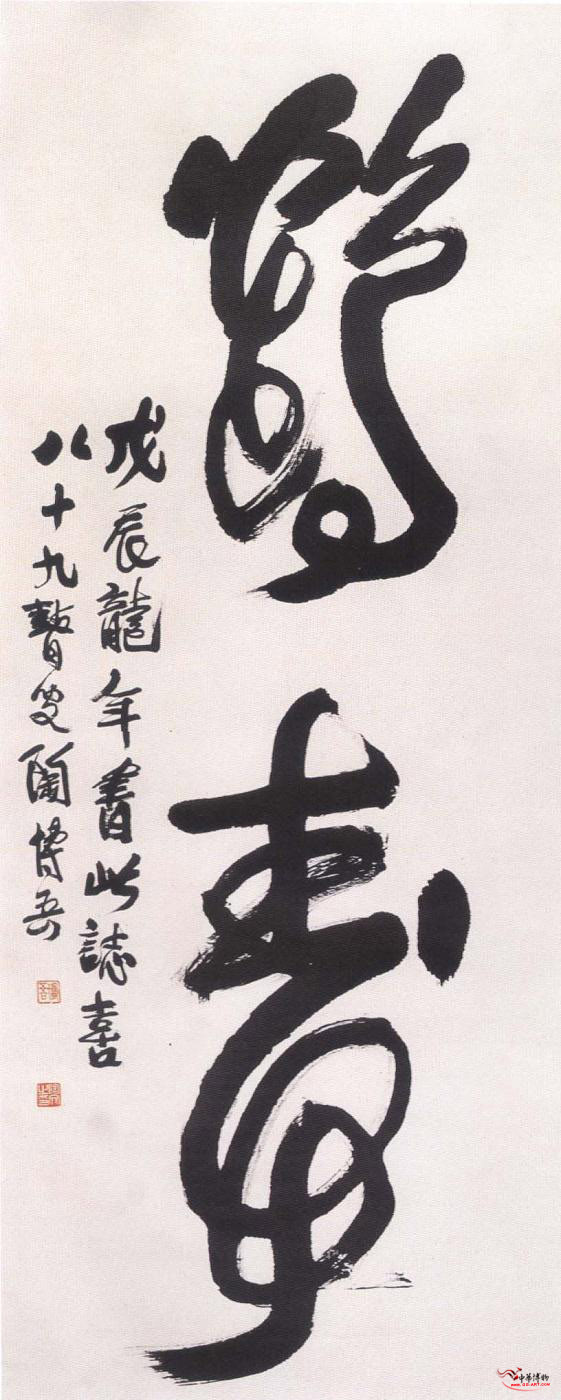 壽
戊辰龍年書此誌喜
八十九瞽叟陶博吾
中華博物
WWW.GG-ART.COM